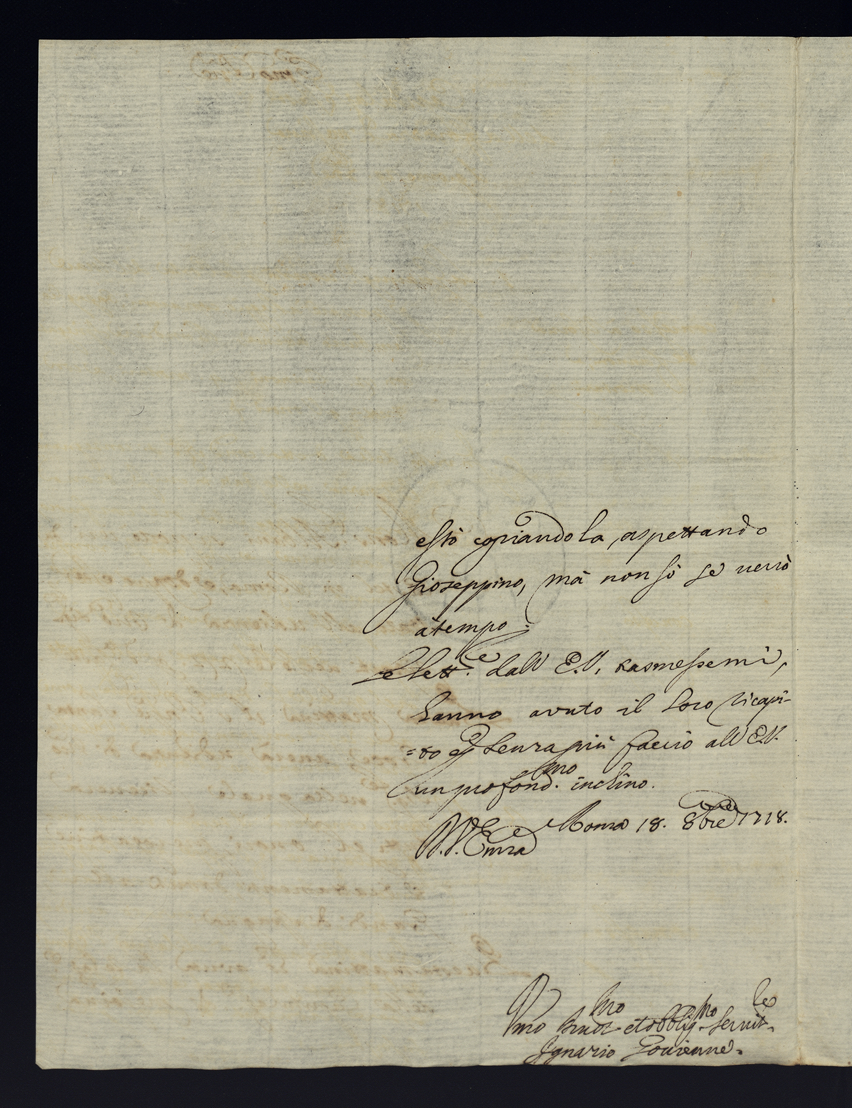 està copiandola, aspettando
Gioseppino, mà non sò se verrò
à tempo.
Le lett.e dall' E.V. trasmessemi,
hanno avuto il loro ricapi-
=to e senza più faccio all' E.V.
un profond.mo inclino.
D.V. Emza Roma 18. 8bre 1718.
Umo Devot.mo et obblig.mo Servit.le
Ignazio